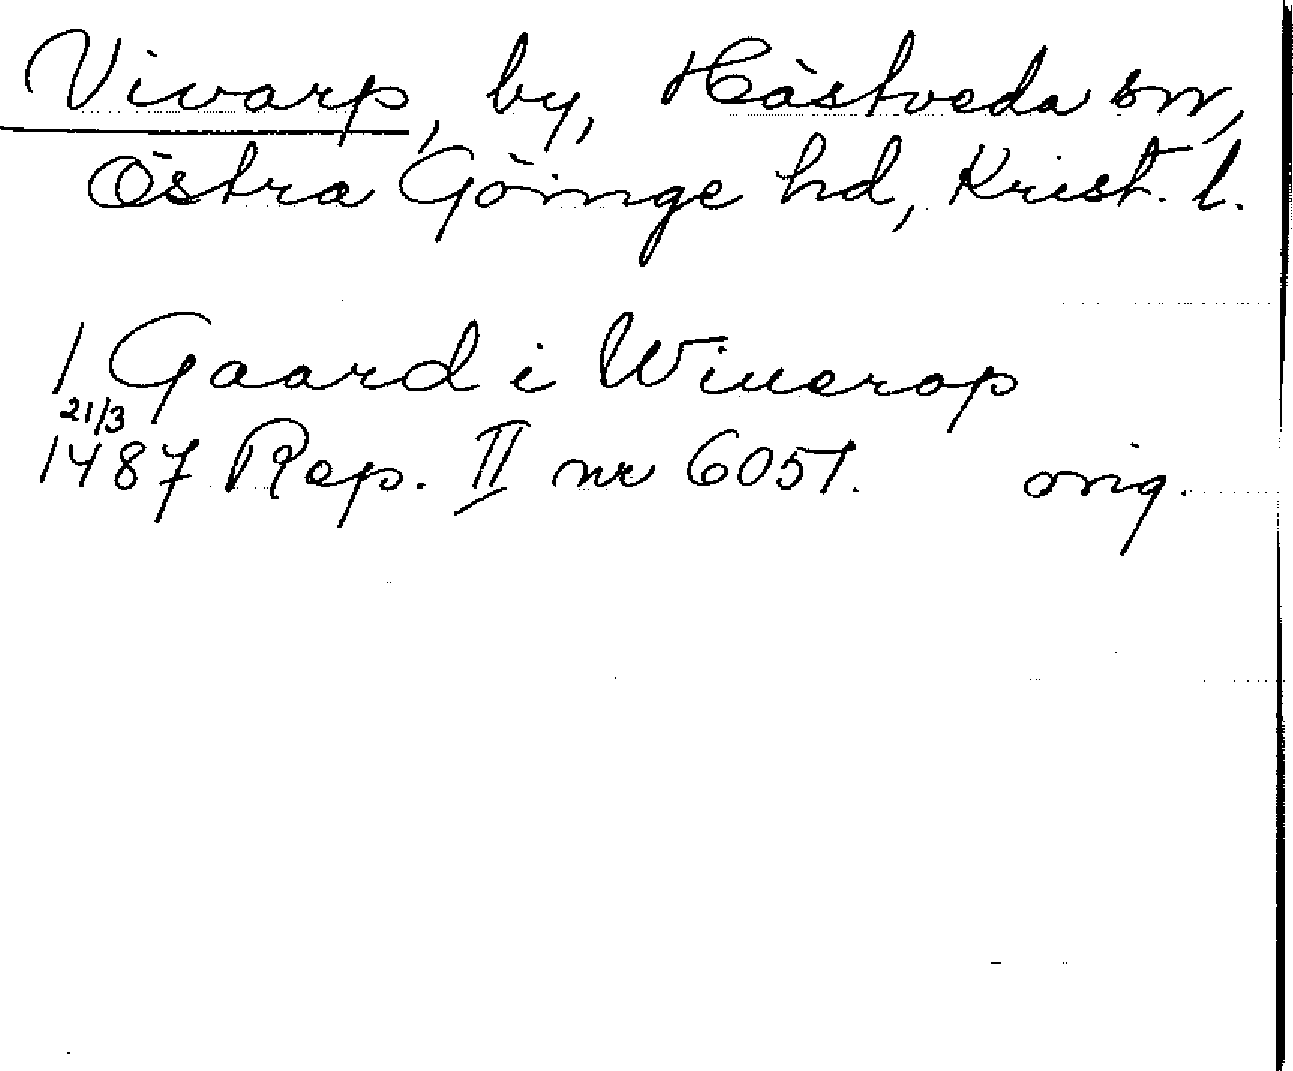 Vivarp, by, Hästveda sn,
Östra Göinge hd, Krist. l.
1 Gaard i Wiuerop
21/3
1487 Rep. II nr 6051. orig.